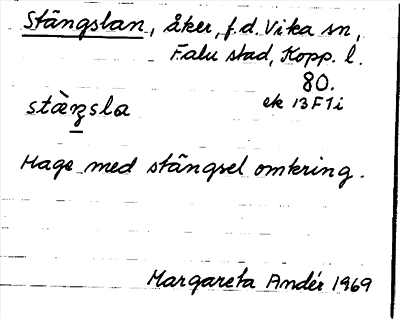 Stängslan, åker, f.d. Vika sn,
Falu stad, Kopp. l.
80.
ek 13F1i
stàꞑsla
Hage med stängsel omkring.
Margareta Andér 1969